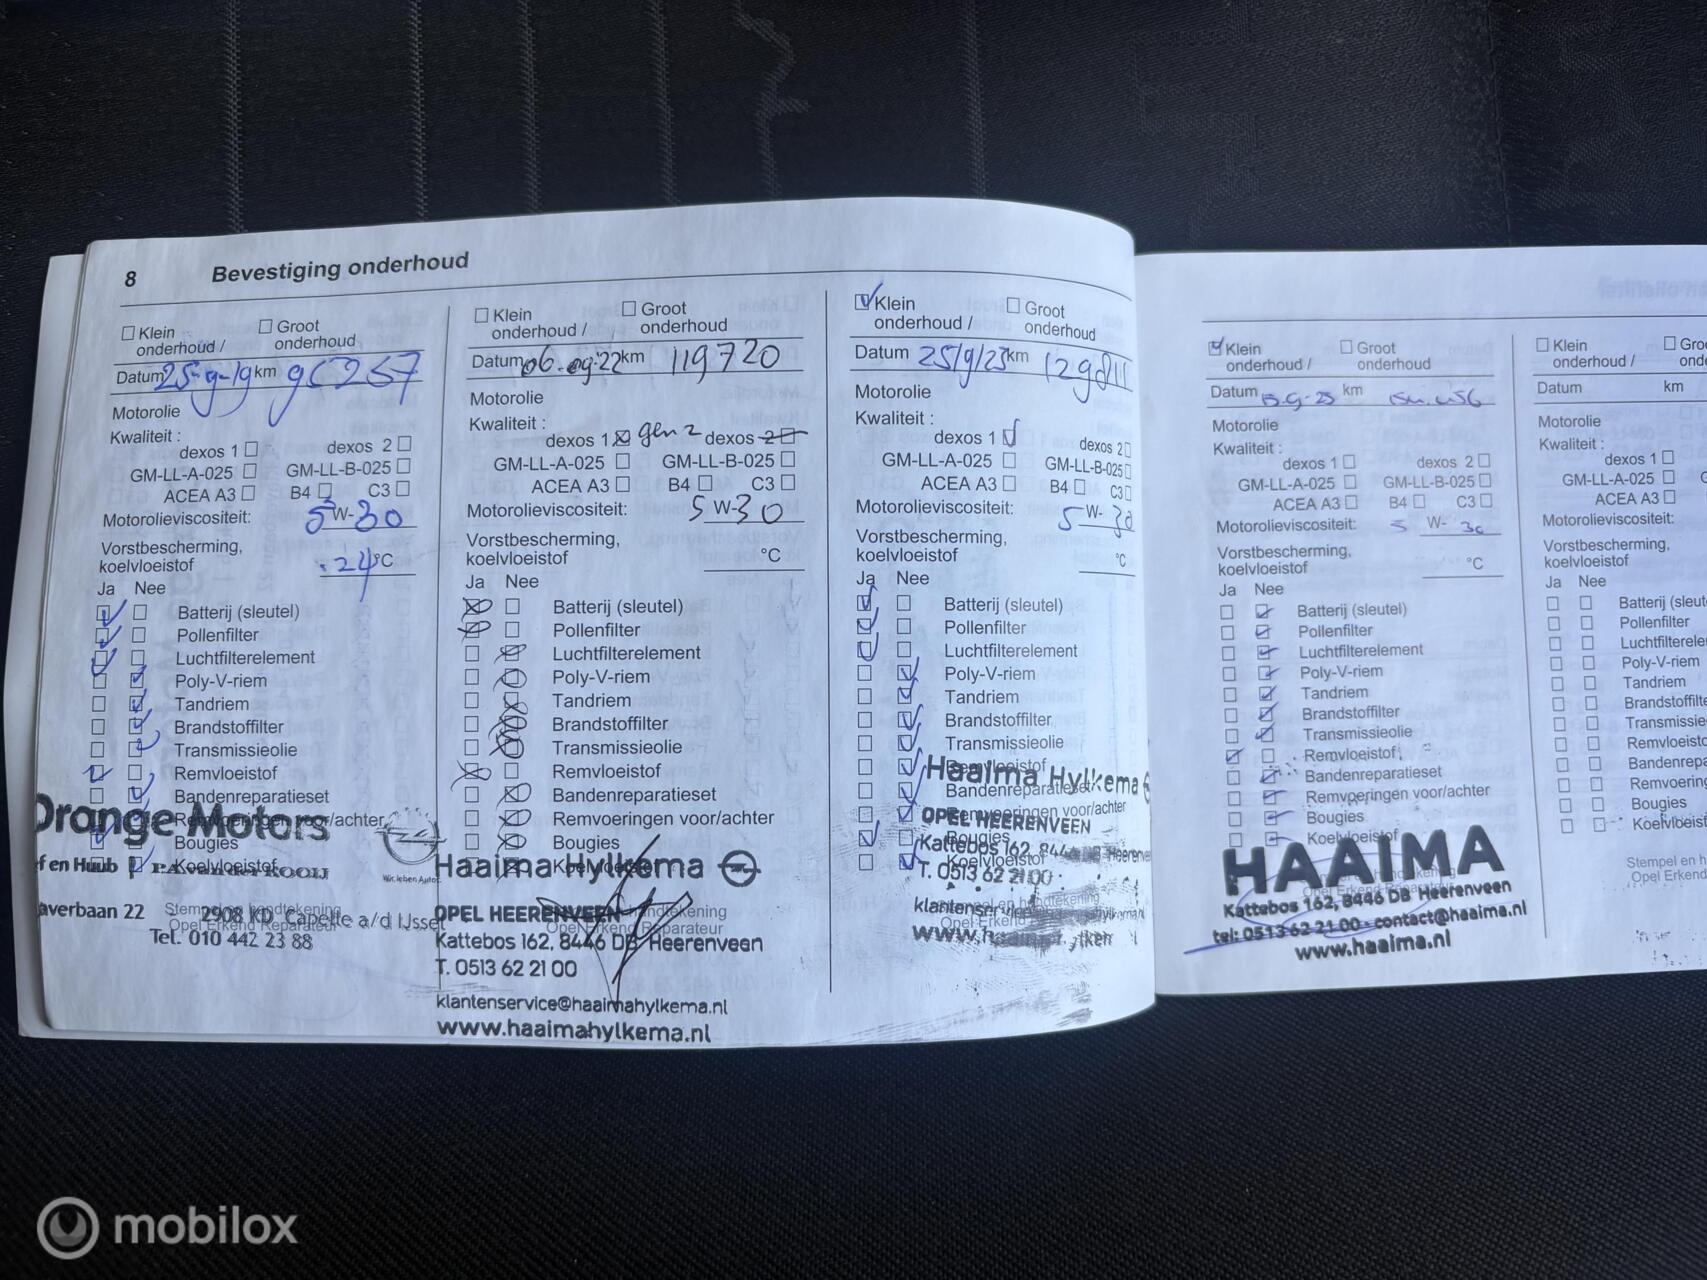 8 Bevestiging onderhoud
Klein onderhoud /
Groot onderhoud
Datum 25-9-19 km
Motorolie
Kwaliteit :
dexos 1 dexos 2
GM-LL-A-025 GM-LL-B-025
ACEA A3 B4 C3
Motorolieviscositeit: 5 W-30
Vorstbescherming,
koelvloeistof -24 °C
Ja Nee
Batterij (sleutel)
Pollenfilter
Luchtfilterelement
Poly-V-riem
Tandriem
Brandstoffilter
Transmissieolie
Remvloeistof
Bandenreparatieset
Remvoeringen voor/achter
Bougies
Koelvloeistof
Orange Motors
f en Huub
P.A. van der KOOIJ
Wir leben Autos
averbaan 22
Stempel en handtekening
Opel Erkend Reparateur
2908 KD Capelle a/d IJssel
Tel. 010 442 23 88
Klein onderhoud /
Groot onderhoud
Datum 06-09-'22 km 119720
Motorolie
Kwaliteit :
dexos 1 gen 2 dexos 2
GM-LL-A-025 GM-LL-B-025
ACEA A3 B4 C3
Motorolieviscositeit: 5 W-30
Vorstbescherming,
koelvloeistof °C
Ja Nee
Batterij (sleutel)
Pollenfilter
Luchtfilterelement
Poly-V-riem
Tandriem
Brandstoffilter
Transmissieolie
Remvloeistof
Bandenreparatieset
Remvoeringen voor/achter
Bougies
Koelvloeistof
Haaima Hylkema
OPEL HEERENVEEN
handtekening
Opel Erkend Reparateur
Kattebos 162, 8446 DB Heerenveen
T. 0513 62 21 00
klantenservice@haaimahylkema.nl
www.haaimahylkema.nl
Klein onderhoud /
Groot onderhoud
Datum 25/9/23 km
Motorolie
Kwaliteit :
dexos 1 dexos 2
GM-LL-A-025 GM-LL-B-025
ACEA A3 B4 C3
Motorolieviscositeit: 5 W-30
Vorstbescherming,
koelvloeistof °C
Ja Nee
Batterij (sleutel)
Pollenfilter
Luchtfilterelement
Poly-V-riem
Tandriem
Brandstoffilter
Transmissieolie
Remvloeistof
Bandenreparatieset
Remvoeringen voor/achter
Bougies
Koelvloeistof
Haaima Hylkema
OPEL HEERENVEEN
Kattebos 162, 8446 DB Heerenveen
T. 0513 62 21 00
Klein onderhoud /
Groot onderhoud
Datum km
Motorolie
Kwaliteit :
dexos 1 dexos 2
GM-LL-A-025 GM-LL-B-025
ACEA A3 B4 C3
Motorolieviscositeit: 5 W-30
Vorstbescherming,
koelvloeistof °C
Ja Nee
Batterij (sleutel)
Pollenfilter
Luchtfilterelement
Poly-V-riem
Tandriem
Brandstoffilter
Transmissieolie
Remvloeistof
Bandenreparatieset
Remvoeringen voor/achter
Bougies
Koelvloeistof
HAAIMA
Kattebos 162, 8446 DB Heerenveen
tel: 0513 62 21 00 - contact@haaima.nl
www.haaima.nl
Klein onderhoud /
Datum km
Motorolie
Kwaliteit :
dexos 1
GM-LL-A-025
ACEA A3
Motorolieviscositeit:
Vorstbescherming,
koelvloeistof
Ja Nee
Batterij (sleut
Pollenfilter
Luchtfilterelem
Poly-V-riem
Tandriem
Brandstoffilte
Transmissie
Remvloeisto
Bandenrepa
Remvoering
Bougies
Koelvloeist
Stempel en h
Opel Erkend
mobilox